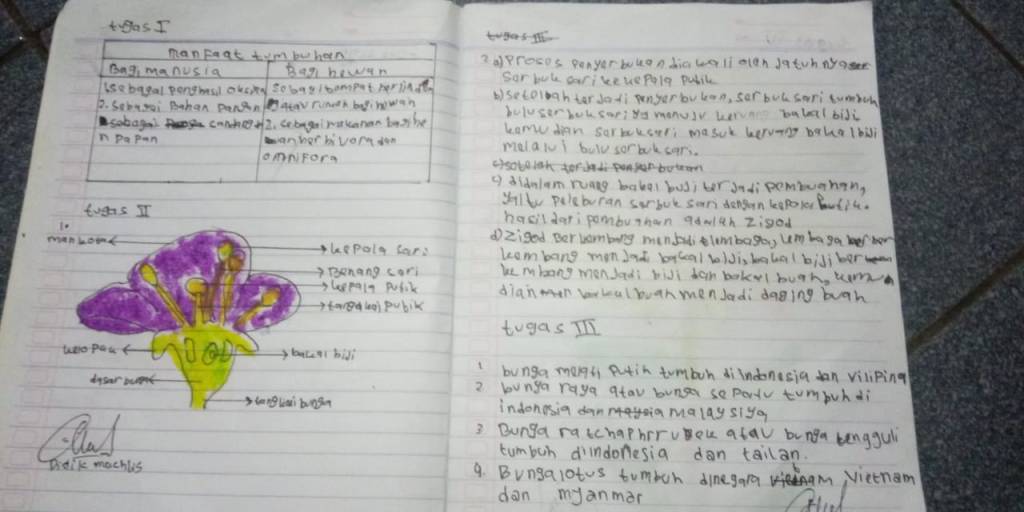 tugas I
manfaat tumbuhan
Bagi manusia
Bagi hewan
1. sebagai penghasil oksigen
2. sebagai Bahan Pangan
sebagai
n papan
sebagai tempat berlindung
atau rumah bagi hewan
2. sebagai makanan bagi he
wan herbivora dan
omnifora
tugas II
1.
mahkota
kepala sari
Benang sari
kepala Putik
tangkai putik
kelopak
bakal biji
dasar bunga
tangkai bunga
Didik machlis
tugas III
2 a) Proses penyerbukan diawali oleh jatuhnya ser
Serbuk sari ke kepala Putik
b) setelah terjadi penyerbukan, serbuk sari tumbuh
bulu serbuk sari yg menuju keruang bakal biji
kemudian serbuk sari masuk keruang bakal biji
melalui bulu serbuk sari.
c) setelah terjadi penyerbukan
c) didalam ruang bakal biji terjadi pembuahan,
yaitu peleburan serbuk sari dengan kepala Putik.
hasil dari pembuahan adalah Zigod
d) Zigod Berkembang menjadi lembaga, lembaga ber
kembang menjadi bakal biji, bakal biji ber
kembang menjadi biji dan bakal buah, kemu
dian bakal buah menjadi daging buah
tugas III
1 bunga melati Putih tumbuh di indonesia dan Vilipina
2 bunga raya atau bunga se Patu tumbuh di
indonesia dan malaysiya
3 Bunga ratchaphrruek atau bunga tengguli
tumbuh di indonesia dan tailan.
4. Bunga lotus tumbuh dinegara Vietnam
dan myanmar